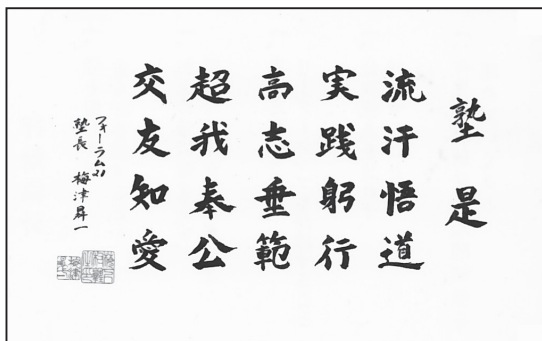 塾是
流汗悟道
実践躬行
高志垂範
超我奉公
交友知愛
フォーラム21
塾長 梅津昇一